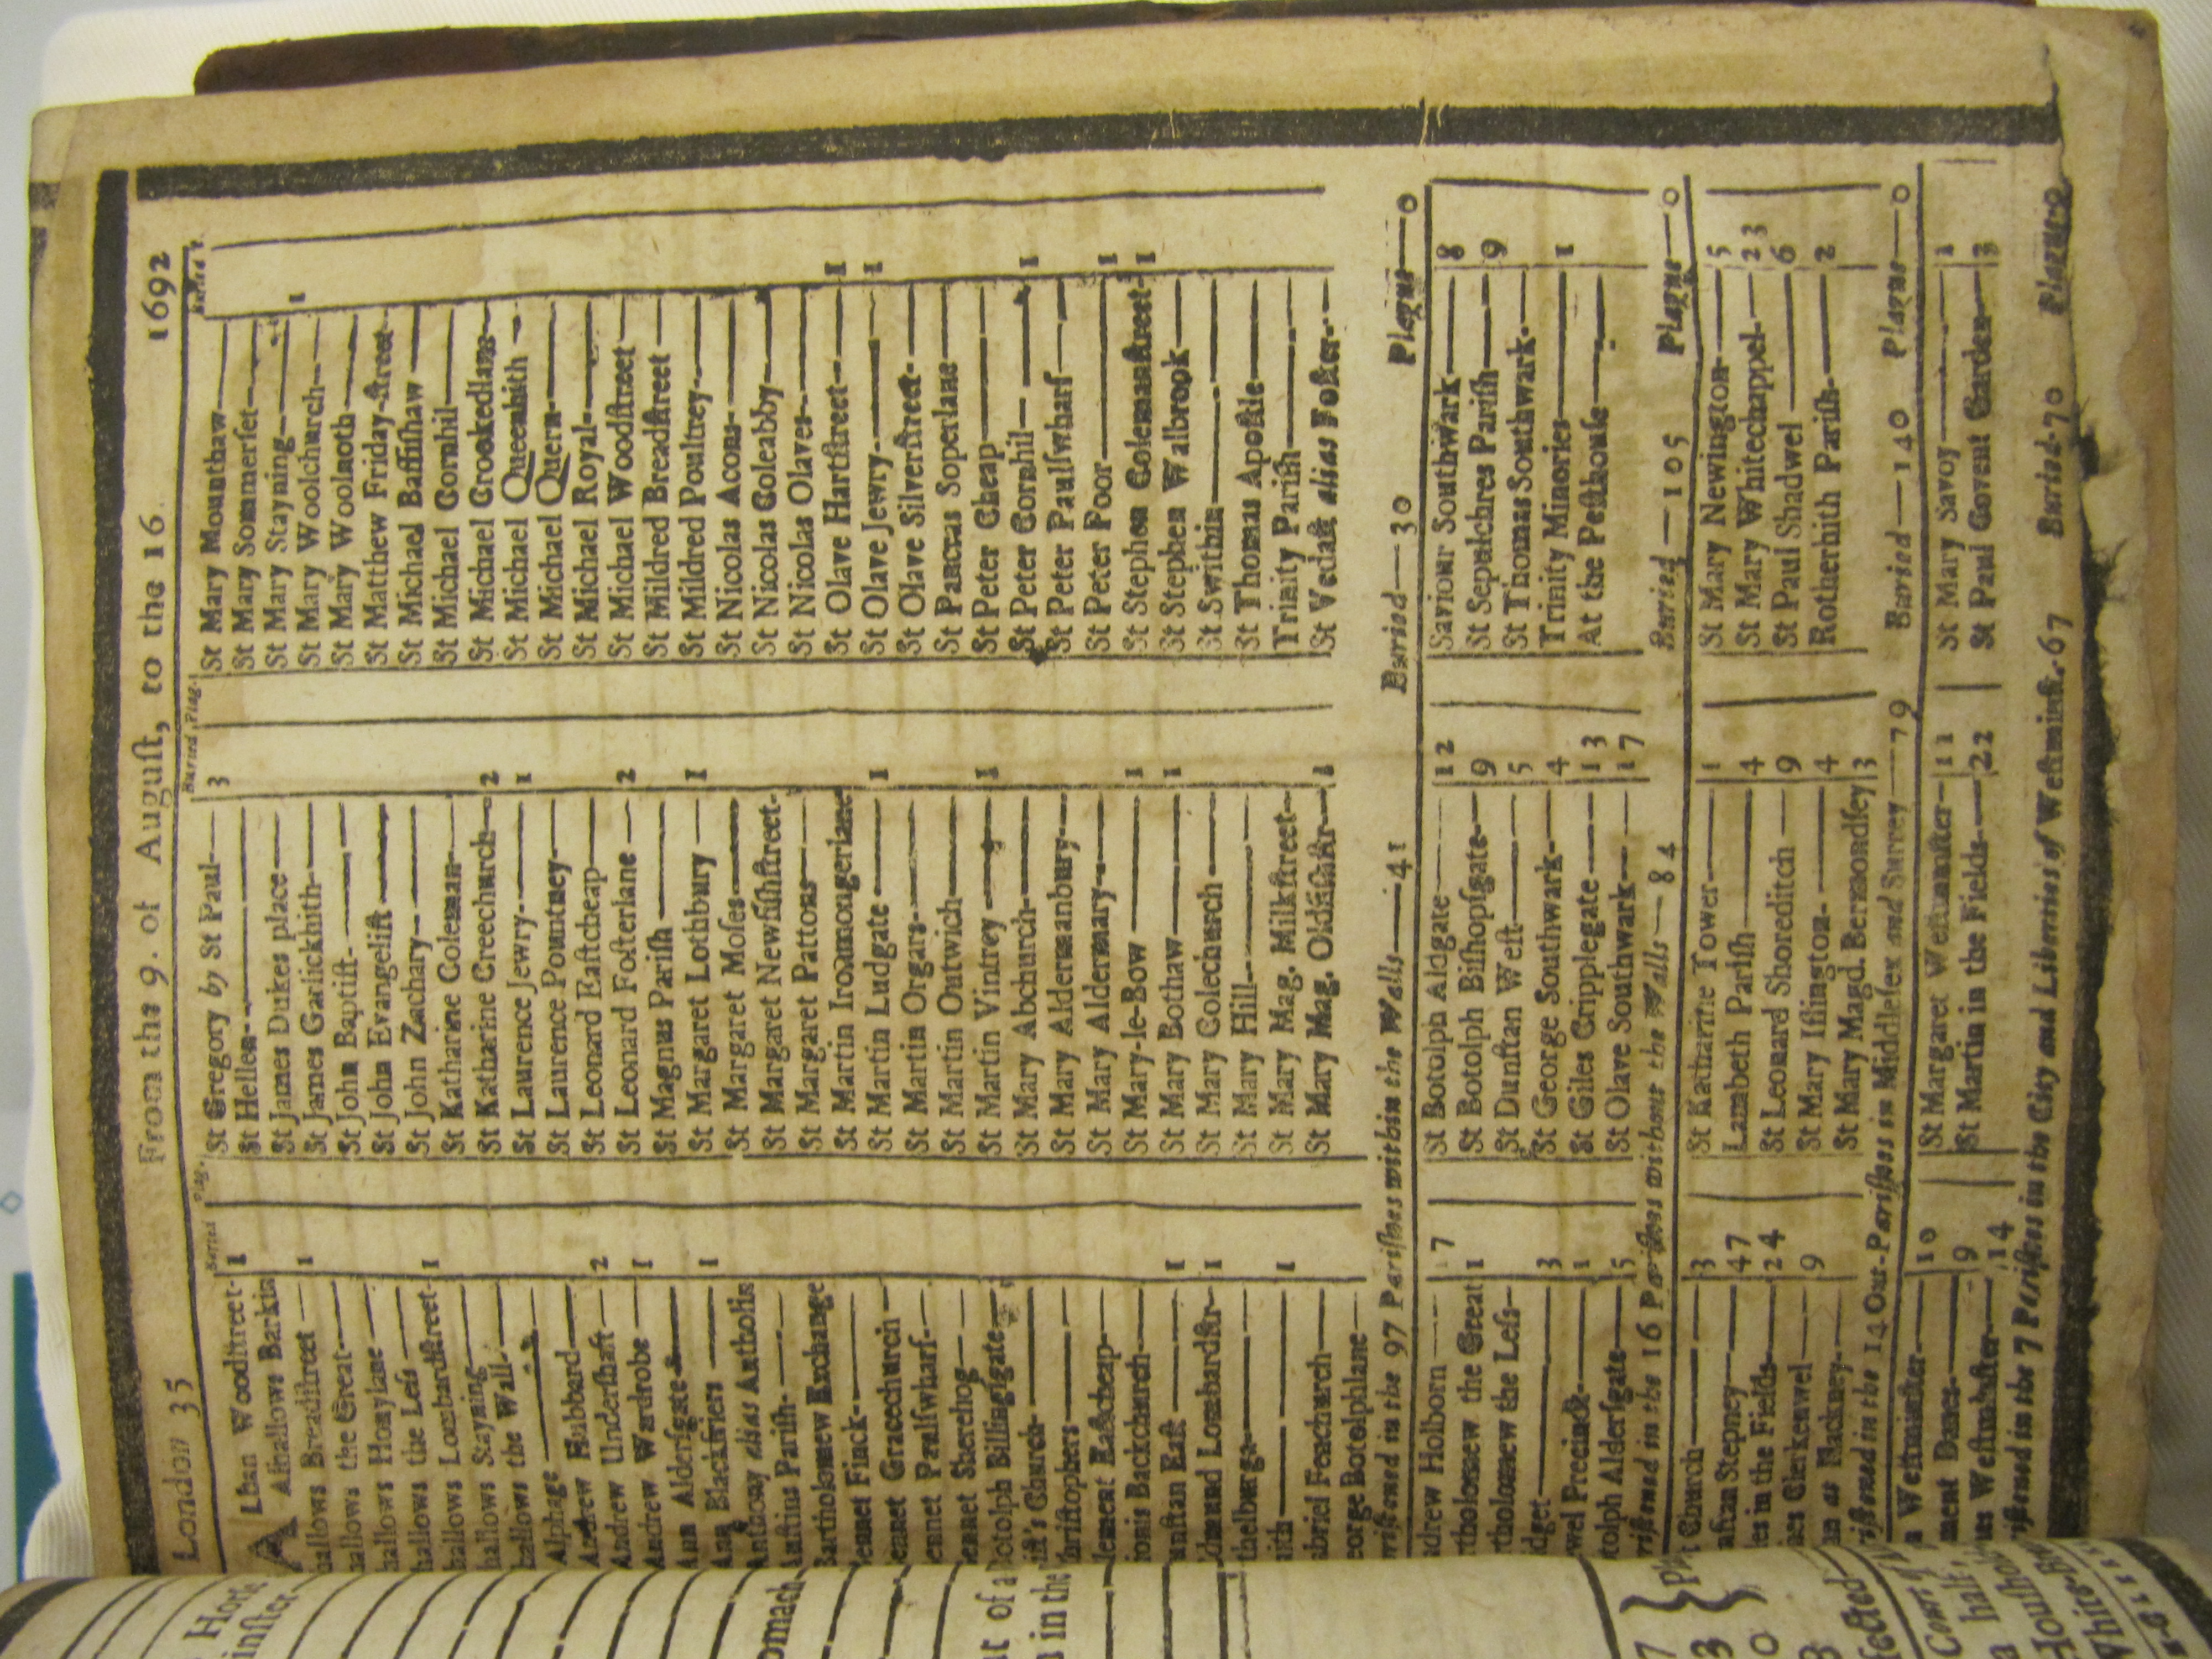 London 35 From the 9. of August, to the 16. 1692
Buried Plag. Buried Plag. Buried
ALban Woodſtreet- 1
Alhallows Barkin
hallows Breadſtreet — 1
hallows the Great—
hallows Honylane —
hallows the Leſs —
hallows Lombardſtreet- 1
hallows Stayning—
hallows the Wall-
Alphage —
Andrew Hubbard—
Andrew Underſhaft — 2
Andrew Wardrobe — 1
Ann Alderſgate—
Ann Blackfriers — 1
Anthony alias Antholin
Auſtins Pariſh-
Bartholomew Exchange
ennet Finck-
ennet Gracechurch —
ennet Paulſwharf-
ennet Sherehog—
Botolph Billingſgate—
iſt's Church-
hriſtophers —
lement Eaſtcheap—
ionis Backchurch—
unſtan Eaſt — 1
dmund Lombardſtr- 1
thelburga—
aith — 1
abriel Fenchurch—
eorge Botolphlane—
St Gregory by St Paul — 3
St Hellen-
St James Dukes place—
St James Garlickhith-
St John Baptiſt-
St John Evangeliſt —
St John Zachary—
St Katharine Coleman-
St Katharine Creechurch— 2
St Laurence Jewry— 1
St Laurence Pountney—
St Leonard Eaſtcheap—
St Leonard Foſterlane — 2
St Magnus Pariſh —
St Margaret Lothbury — 1
St Margaret Moſes—
St Margaret Newfiſhſtreet-
St Margaret Pattons—
St Martin Ironmongerlane
St Martin Ludgate — 1
St Martin Orgars-
St Martin Outwich—
St Martin Vintrey — 1
St Mary Abchurch—
St Mary Aldermanbury—
St Mary Aldermary—
St Mary-le-Bow — 1
St Mary Bothaw— 1
St Mary Colechurch —
St Mary Hill-
St Mary Mag. Milkſtreet-
St Mary Mag. Oldfiſhſtr— 1
St Mary Mounthaw—
St Mary Sommerſet—
St Mary Stayning— 1
St Mary Woolchurch—
St Mary Woolnoth—
St Matthew Friday-ſtreet-
St Michael Baſſiſhaw —
St Michael Cornhil—
St Michael Crookedlane-
St Michael Queenhith —
St Michael Quern—
St Michael Royal—
St Michael Woodſtreet—
St Mildred Breadſtreet —
St Mildred Poultrey-
St Nicolas Acons-
St Nicolas Coleabby—
St Nicolas Olaves-
St Olave Hartſtreet— 1
St Olave Jewry— 1
St Olave Silverſtreet-
St Pancras Soperlane—
St Peter Cheap—
St Peter Cornhil— 1
St Peter Paulſwharf—
St Peter Poor— 1
St Stephen Colemanſtreet- 1
St Stephen Walbrook—
St Swithin—
St Thomas Apoſtle—
Trinity Pariſh—
St Vedaſt alias Foſter-
riſtened in the 97 Pariſhes within the Walls—41 Buried—30 Plague—0
ndrew Holborn — 17
rtholomew the Great 1
rtholomew the Leſs-
idget— 3
wel Precinct— 1
tolph Alderſgate— 5
St Botolph Aldgate— 12
St Botolph Biſhopſgate— 9
St Dunſtan Weſt— 5
St George Southwark— 4
St Giles Cripplegate— 13
St Olave Southwark— 17
Saviour Southwark— 8
St Sepulchres Pariſh— 9
St Thomas Southwark-
Trinity Minories— 1
At the Peſthouſe—
riſtened in the 16 Pariſhes without the Walls—84 Buried—105 Plague—0
t Church — 3
nſtan Stepney— 47
les in the Fields— 24
mes Clerkenwel— 9
hn at Hackney-
St Katharine Tower— 1
Lambeth Pariſh— 4
St Leonard Shoreditch — 9
St Mary Iſlington- 4
St Mary Magd. Bermondſey 3
St Mary Newington— 5
St Mary Whitechappel— 23
St Paul Shadwel — 6
Rotherhith Pariſh- 2
riſtened in the 14 Out-Pariſhes in Middleſex and Surrey —79 Buried—140 Plague—0
Weſtminſter— 10
ment Danes— 9
es Weſtminſter— 14
St Margaret Weſtminſter— 11
St Martin in the Fields— 22
St Mary Savoy— 1
St Paul Covent Garden— 3
riſtened in the 7 Pariſhes in the City and Liberties of Weſtminſt. 67 Buried-70 Plague 0
Horſe
inſter
omach
t of a
s in the
fected
Court of
a half,